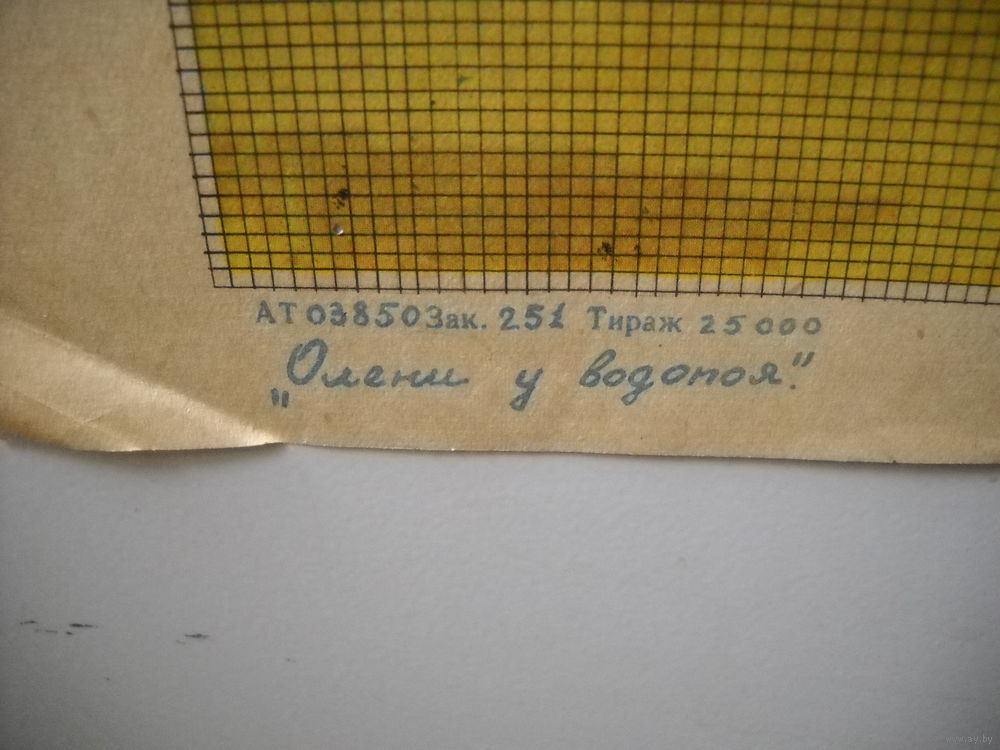 АТ 03850 Зак. 251 Тираж 25 000
„Олени у водопоя."
www.ay.by